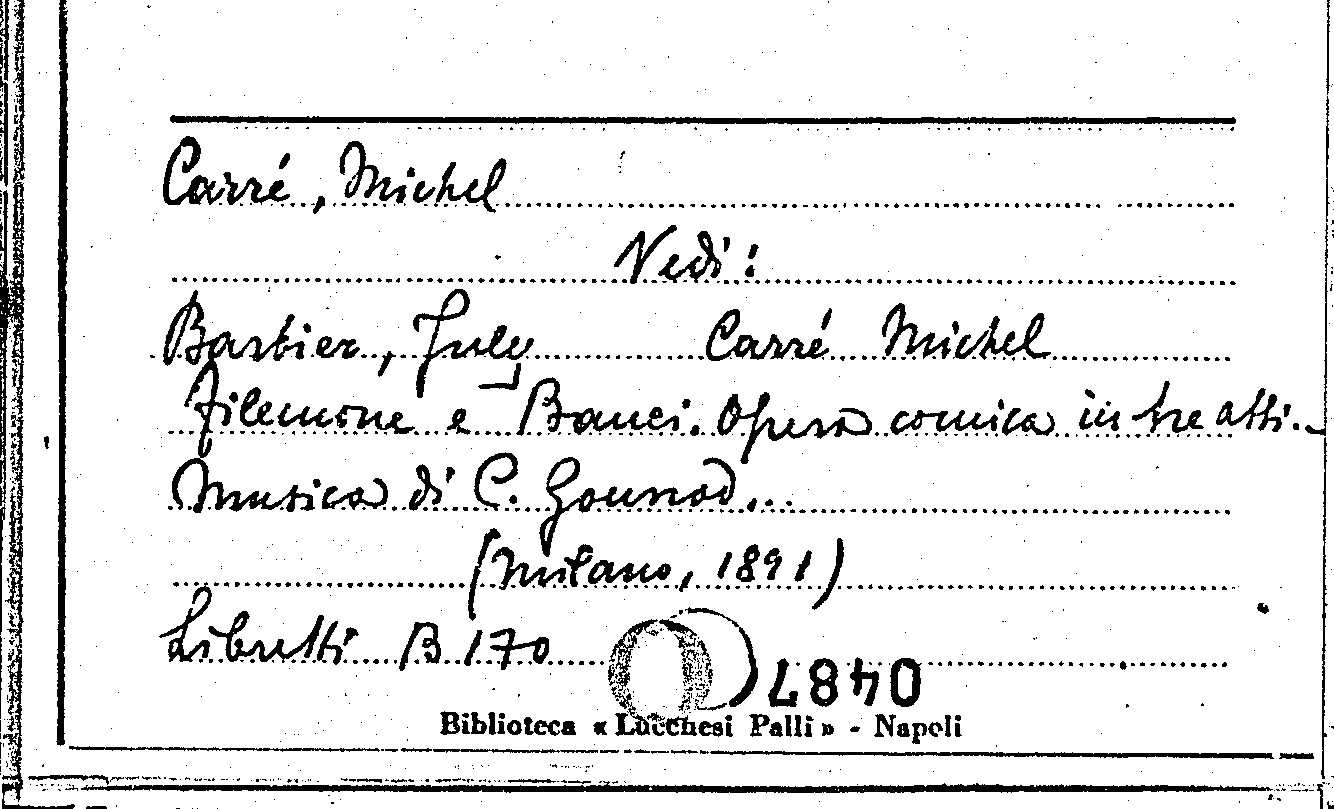 Carré, Michel
Vedi:
Barbier, July Carré Michel
Filemone e Bauci. Opera comica in tre atti.-
Musica di C. Gounod...
(Milano, 1891)
Libretti B 170
0487
Biblioteca « Lucchesi Palli » - Napoli